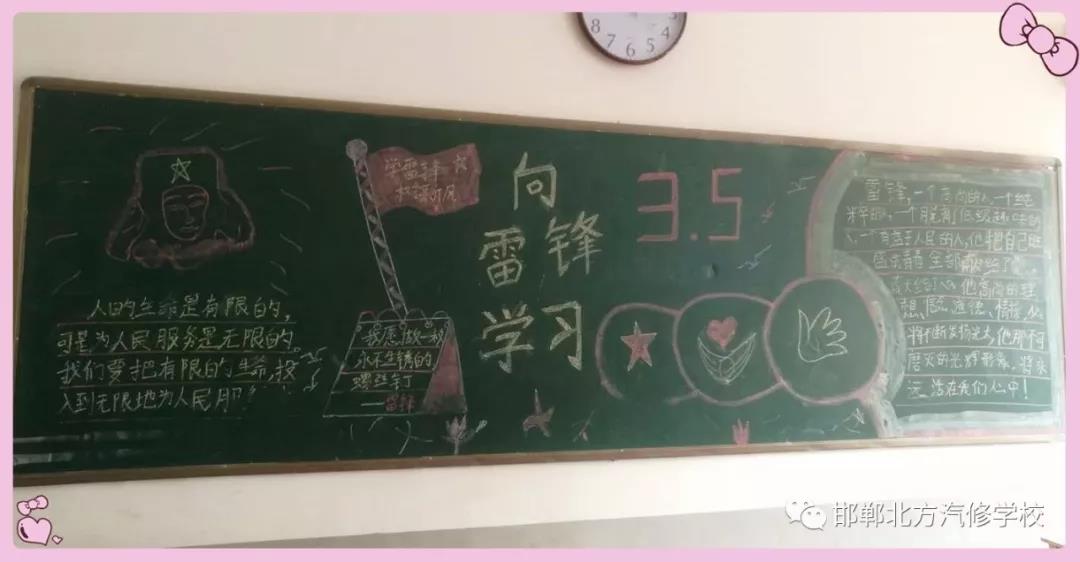 8
7
6
5
4
学雷锋
人的生命是有限的,
可是为人民服务是无限的。
我们要把有限的生命,投
入到无限地为人民服
我愿做一枚
永不生锈的
螺丝钉
——雷锋
向
雷锋
学习
3.5
雷锋,一个高尚的人,一个纯
粹的,一个脱离了低级趣味的
人,一个有益于人民的人,他把自己
全部
他高尚的理
想,信念,道德,情操,
将不断发扬光大,他那不
磨灭的光辉形象,将永
远活在我们心中!
邯郸北方汽修学校